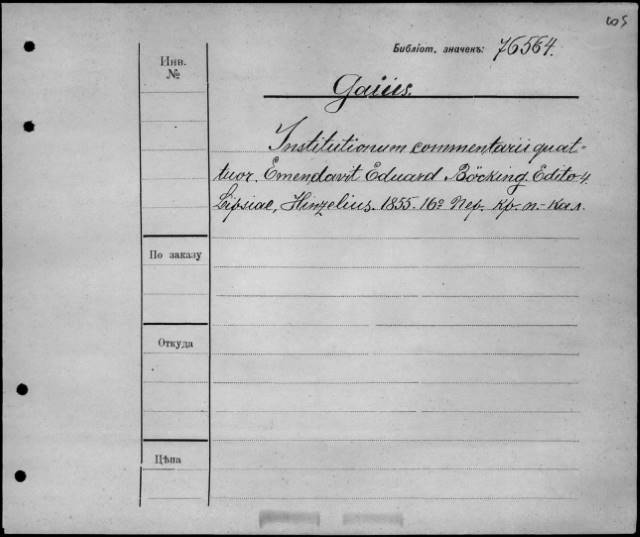 Библіот. значенъ: 76564.
Инв.
№
Gaius.
Institutionum commentarii quat-
tuor. Emendavit Eduard Böcking. Edito 4.
Lipsiae, Hinzelius. 1855. 16º Пер. кр. п.-кал.
По заказу
Откуда
Цѣна